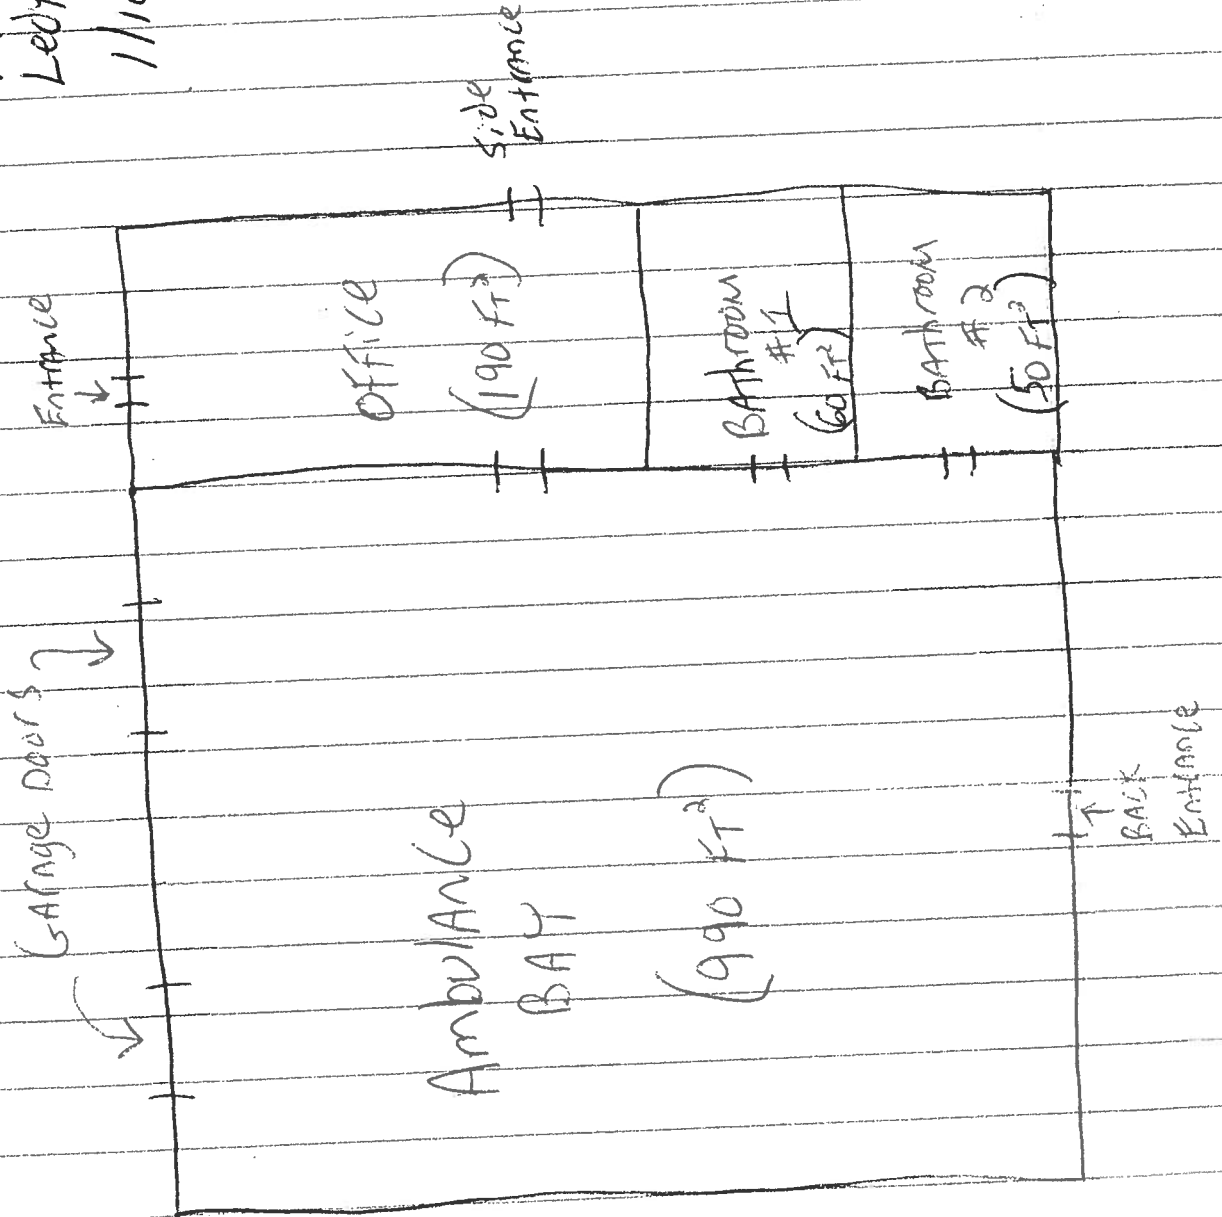 1/1
Side
Entrance
Entrance
Office
(190 FT²)
BAthrooM
#1
(60 FT²)
BAthrooM
#2
(50 FT²)
GArage Doors
AmbulAnce
BAY
(990 FT²)
BACK
Entrance